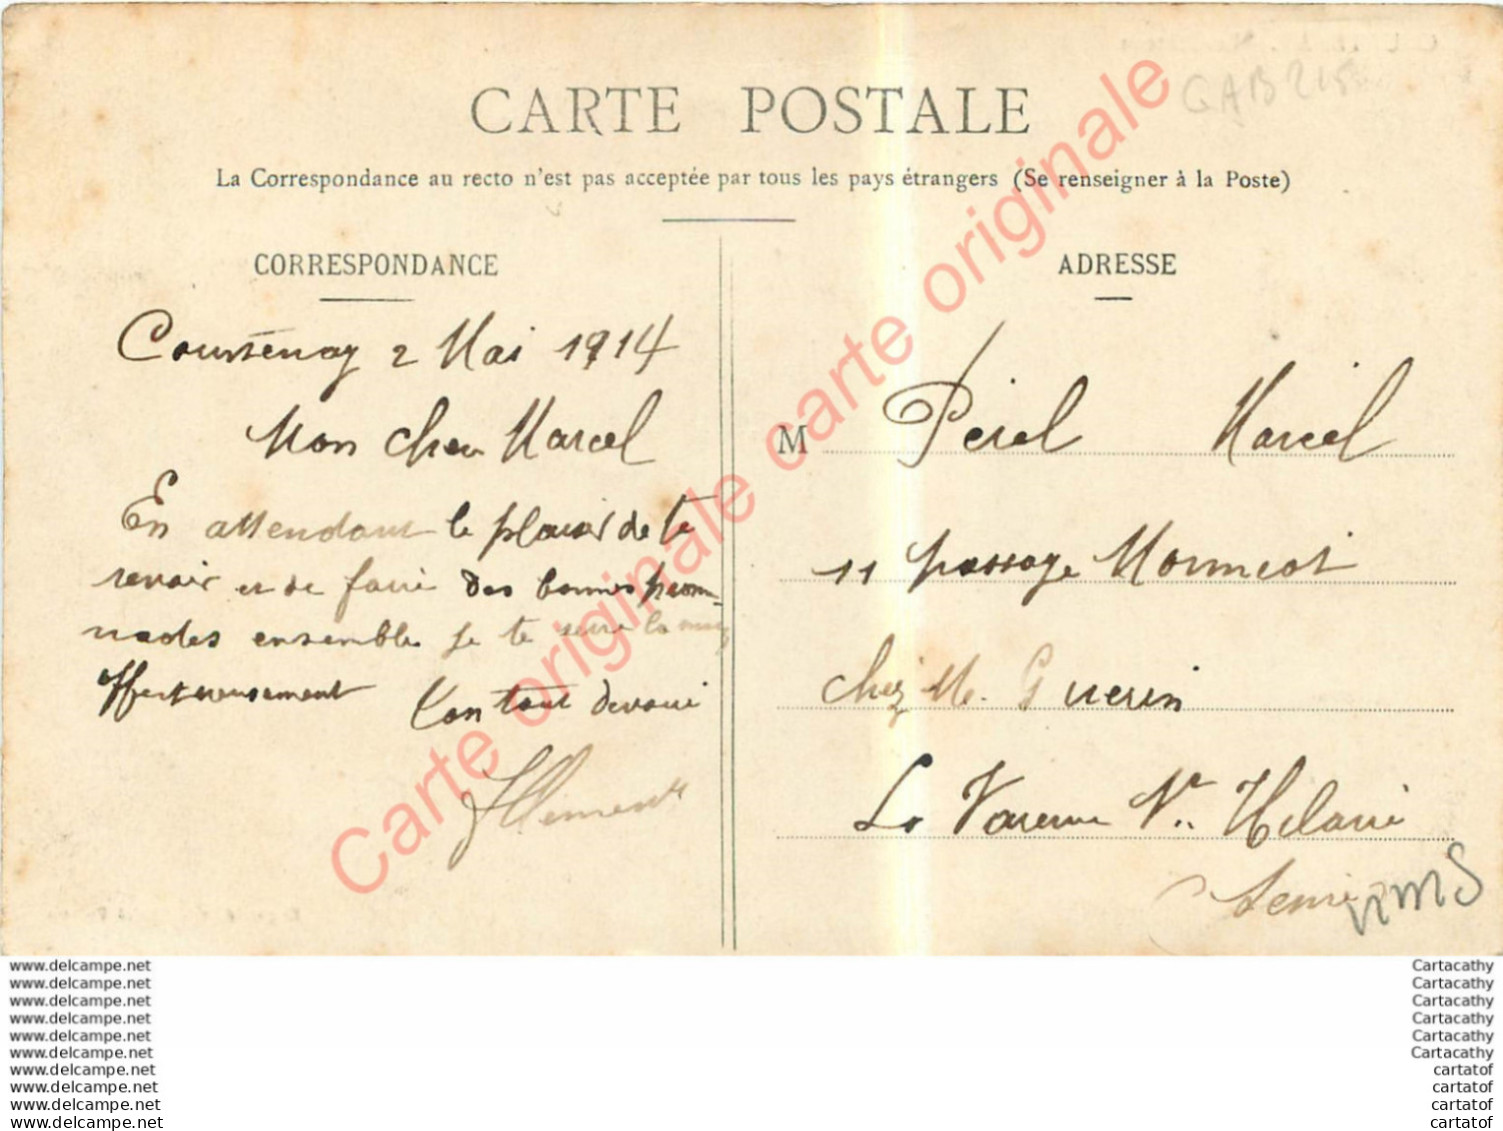 GAB 215
CARTE POSTALE
La Correspondance au recto n'est pas acceptée par tous les pays étrangers (Se renseigner à la Poste)
CORRESPONDANCE
Courtenay 2 Mai 1914
Mon cher Marcel
En attendant le plaisir de te
revoir et de faire des bonnes prom-
nades ensemble je te serre la main
affectueusement Ton tout dévoué
Clément
ADRESSE
M Pérel Marcel
11 passage Mormeot
chez M. Guerin
La Varenne St Hilaire
Seine
Carte originale carte originale carte originale
www.delcampe.net
www.delcampe.net
www.delcampe.net
www.delcampe.net
www.delcampe.net
www.delcampe.net
www.delcampe.net
www.delcampe.net
www.delcampe.net
www.delcampe.net
Cartacathy
Cartacathy
Cartacathy
Cartacathy
Cartacathy
Cartacathy
cartatof
cartatof
cartatof
cartatof